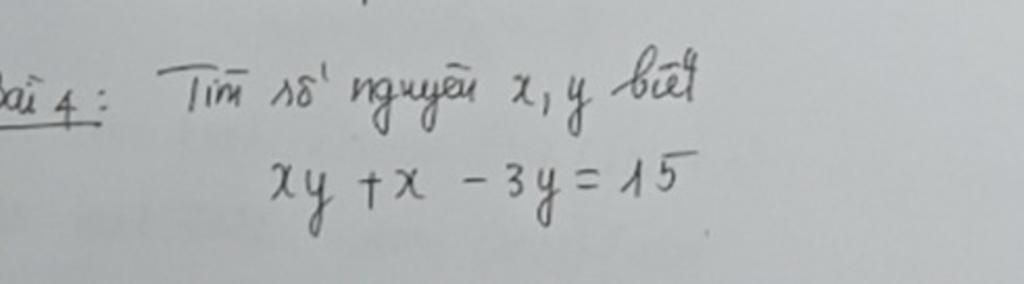 Bài 4: Tìm số nguyên x, y biết
xy + x - 3y = 15